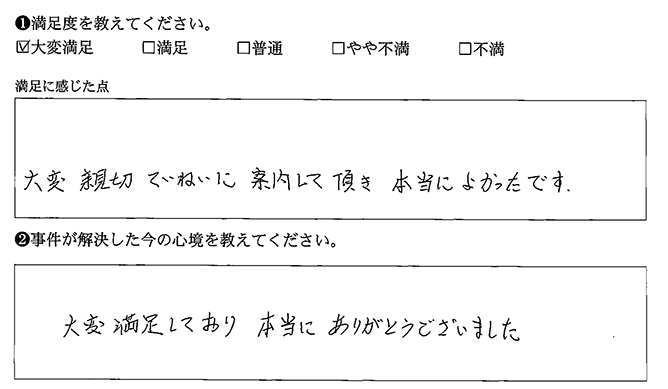 ❶満足度を教えてください。
☑大変満足 □満足 □普通 □やや不満 □不満
満足に感じた点
大変 親切 ていねいに 案内して 頂き 本当に よかったです.
❷事件が解決した今の心境を教えてください。
大変 満足しており 本当に ありがとうございました